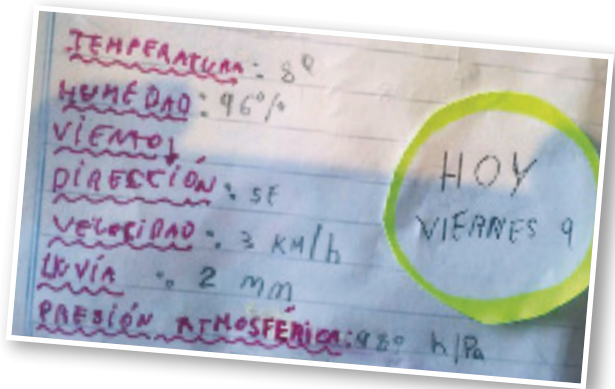 TEMPERATURA: 8º
HUMEDAD: 96%
VIENTO
DIRECCIÓN: SE
VELOCIDAD: 3 KM/h
LLUVÍA: 2 mm
PRESIÓN ATMOSFÉRICA: 980 h/Pa
HOY
VIERNES 9